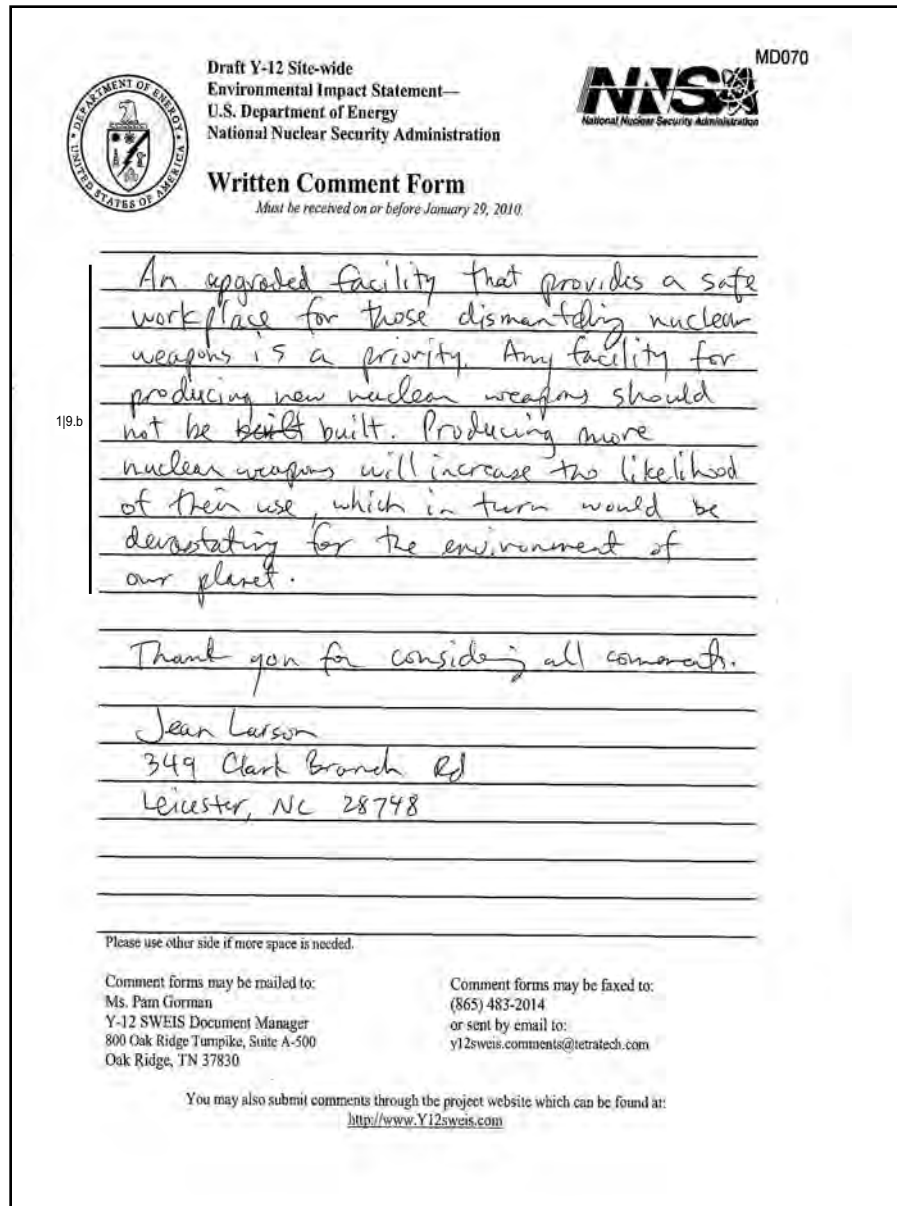 MD070
Draft Y-12 Site-wide
Environmental Impact Statement—
U.S. Department of Energy
National Nuclear Security Administration
DEPARTMENT OF ENERGY
UNITED STATES OF AMERICA
NNSA
National Nuclear Security Administration
Written Comment Form
Must be received on or before January 29, 2010.
An upgraded facility that provides a safe
workplace for those dismantling nuclear
weapons is a priority. Any facility for
producing new nuclear weapons should
1|9.b
not be built built. Producing more
nuclear weapons will increase the likelihood
of their use, which in turn would be
devastating for the environment of
our planet.
Thank you for considering all comments.
Jean Larson
349 Clark Branch Rd
Leicester, NC 28748
Please use other side if more space is needed.
Comment forms may be mailed to:
Ms. Pam Gorman
Y-12 SWEIS Document Manager
800 Oak Ridge Turnpike, Suite A-500
Oak Ridge, TN 37830
Comment forms may be faxed to:
(865) 483-2014
or sent by email to:
y12sweis.comments@tetratech.com
You may also submit comments through the project website which can be found at:
http://www.Y12sweis.com